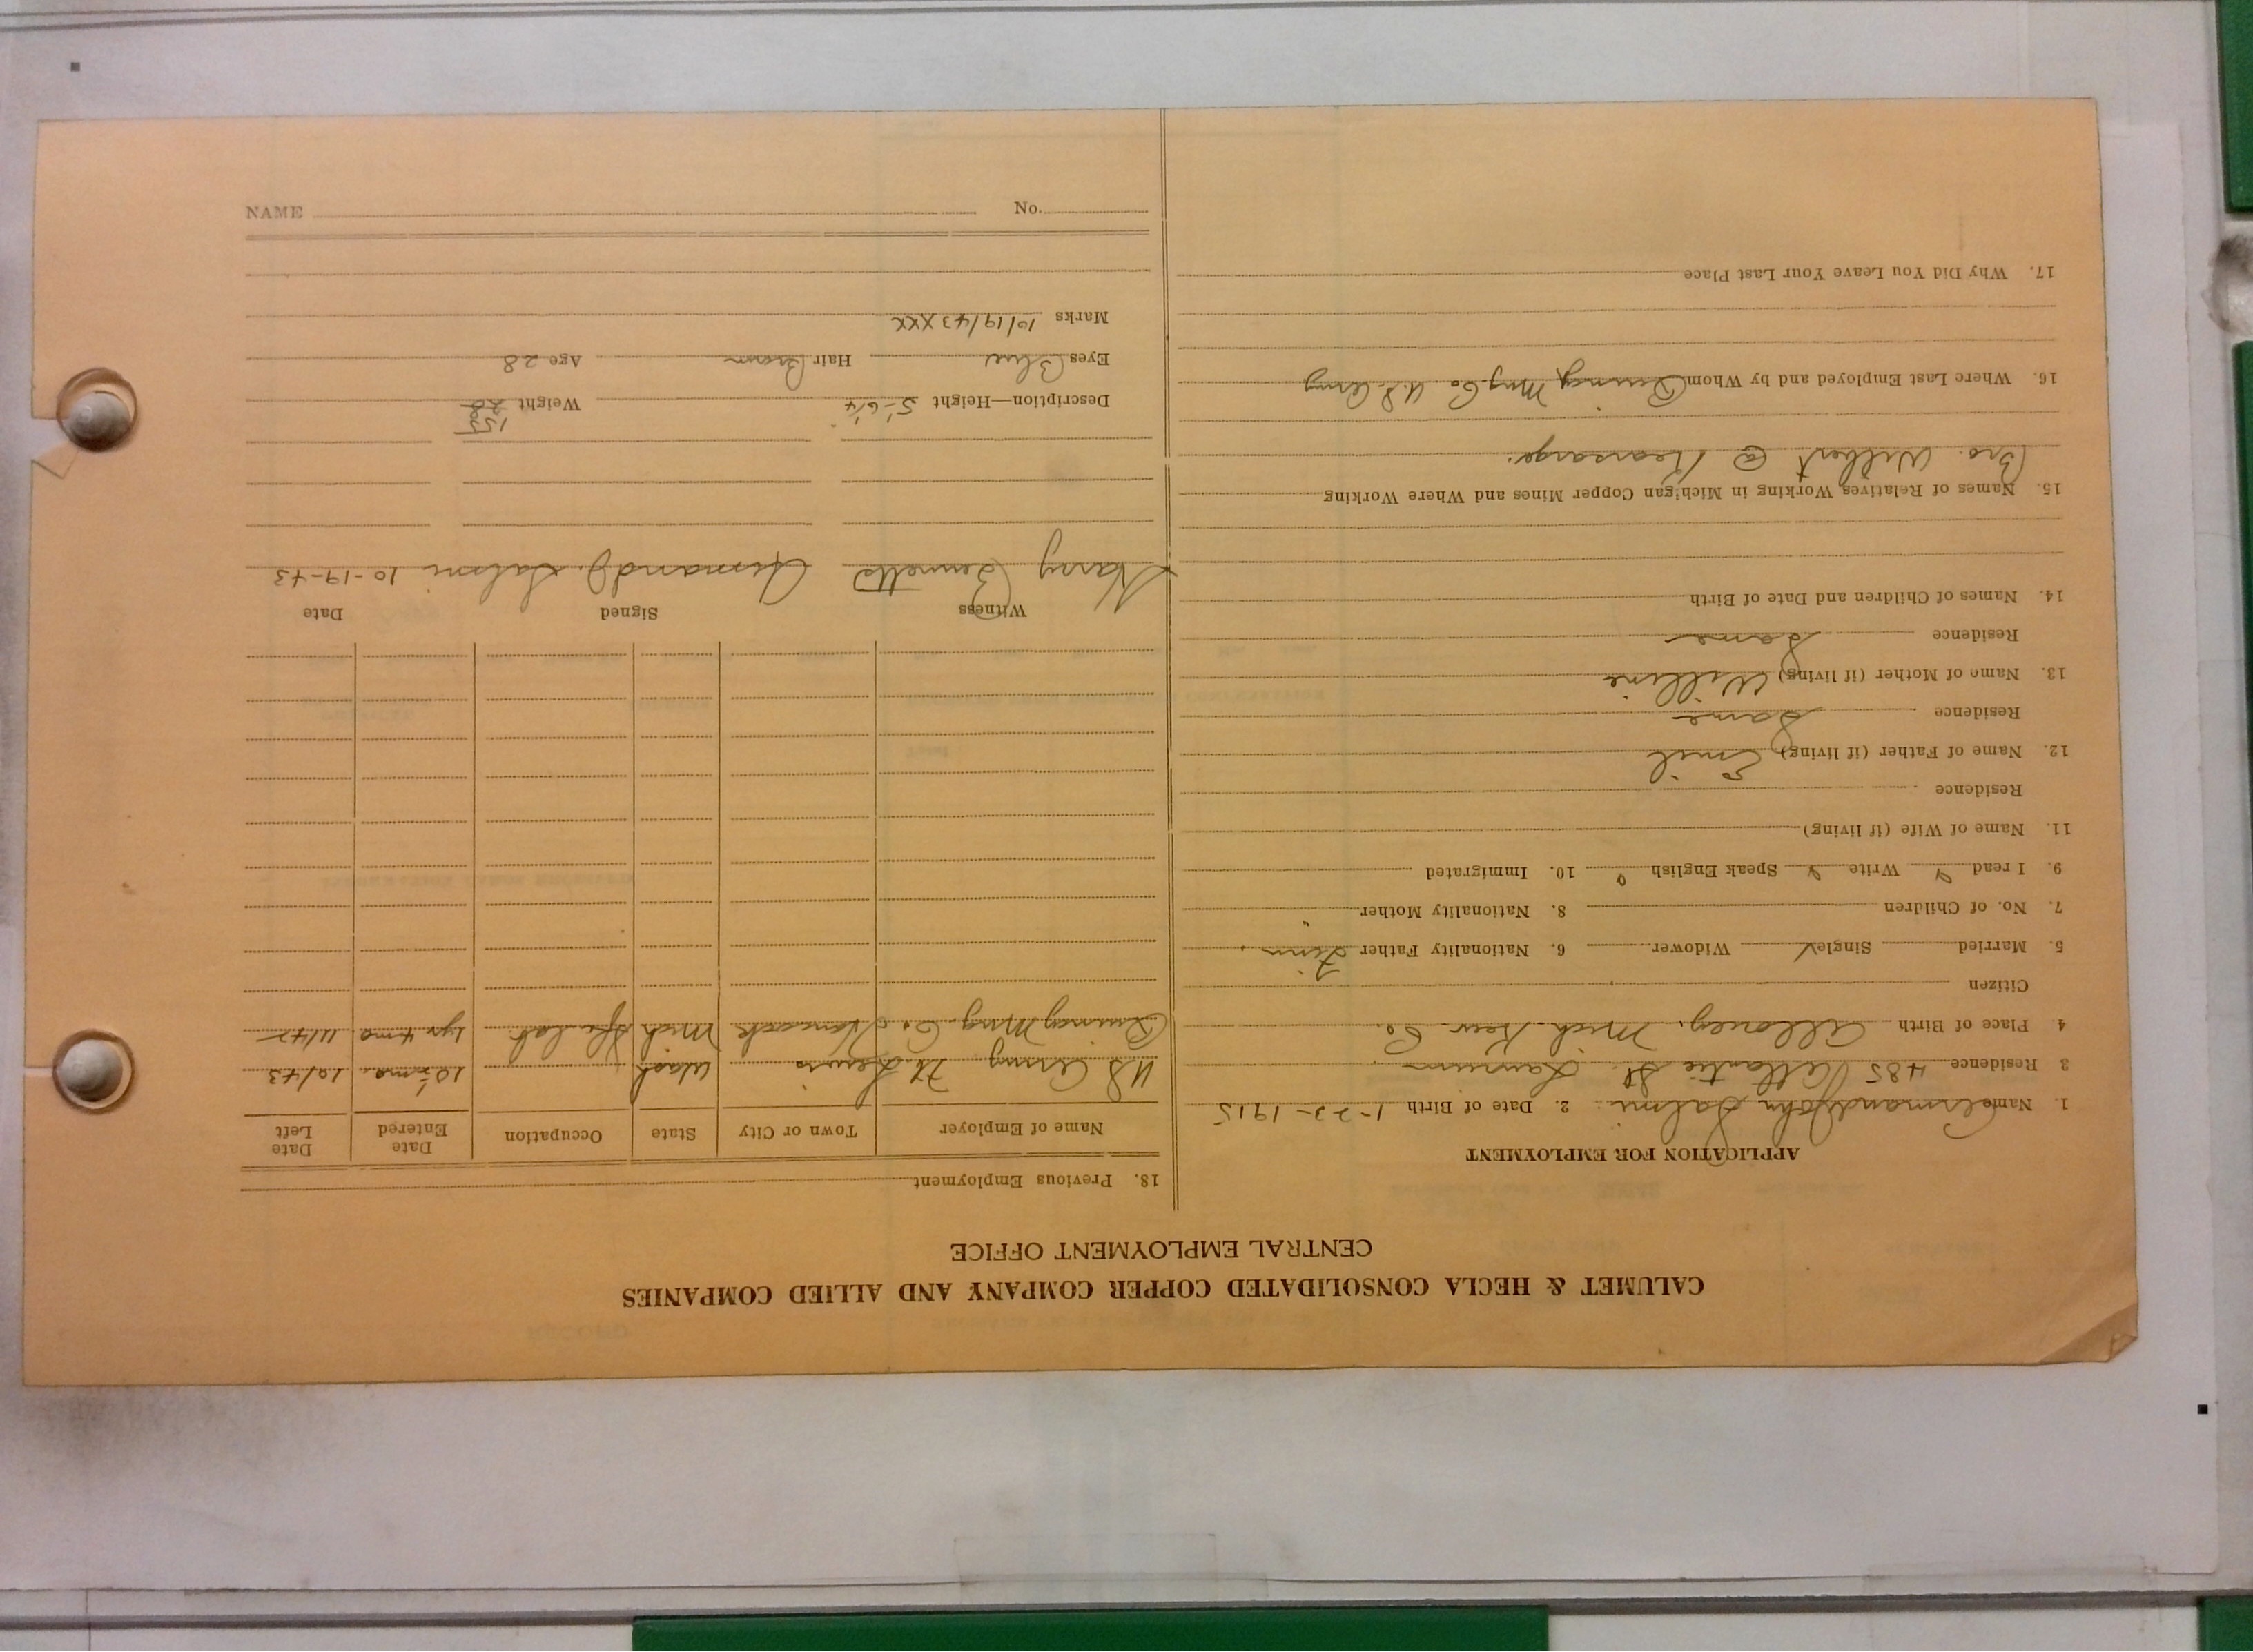 CALUMET & HECLA CONSOLIDATED COPPER COMPANY AND ALLIED COMPANIES
CENTRAL EMPLOYMENT OFFICE
APPLICATION FOR EMPLOYMENT
1. Name Armand John Salmi 2. Date of Birth 1-23-1915
3 Residence 485 Atlantic St. Laurium
4. Place of Birth Allouez, Mich Kew. Co.
Citizen
5. Married Single ✓ Widower 6. Nationality Father Finn
7. No. of Children 8. Nationality Mother "
9. I read y Write y Speak English y 10. Immigrated
11. Name of Wife (if living)
Residence
12. Name of Father (if living) Emil
Residence Same
13. Name of Mother (if living)
Residence Same
14. Names of Children and Date of Birth
15. Names of Relatives Working in Michigan Copper Mines and Where Working
Bro. Wilbert @ Kearsarge.
16. Where Last Employed and by Whom Quincy Mng Co U.S. Army
17. Why Did You Leave Your Last Place
18. Previous Employment
Name of Employer Town or City State Occupation Date Entered Date Left
U.S Army Ft. Lewis Wash 10½ mo. 10/43
Quincy Mng. Co. Hancock Mich lab. 1yr 4mo. 11/42
Witness Signed Date
Harry Bennetts Armand J. Salmi 10-19-43
Description—Height 5'-6¼" Weight 28 155
Eyes Blue Hair Brown Age 28
Marks 10/19/43 XXX
NAME No.